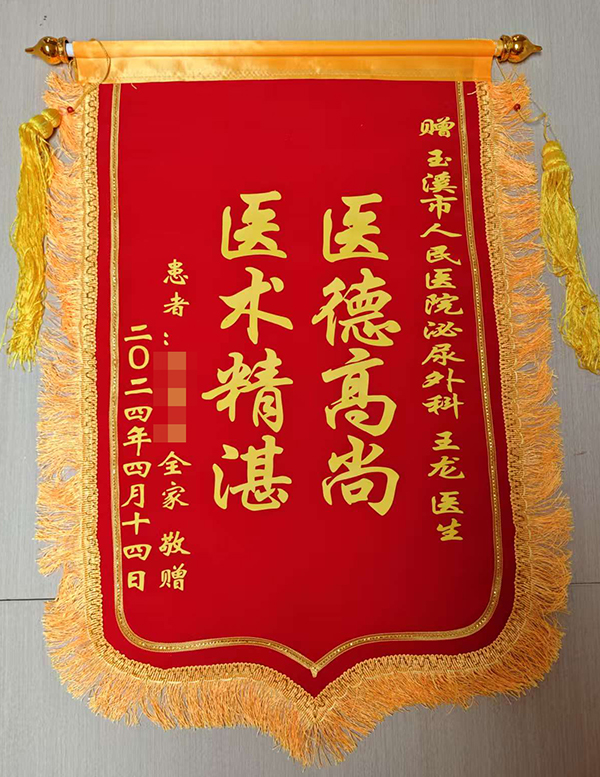 赠 玉溪市人民医院泌尿外科 王龙 医生
医德高尚
医术精湛
患者: 全家 敬赠
二〇二四年四月十四日